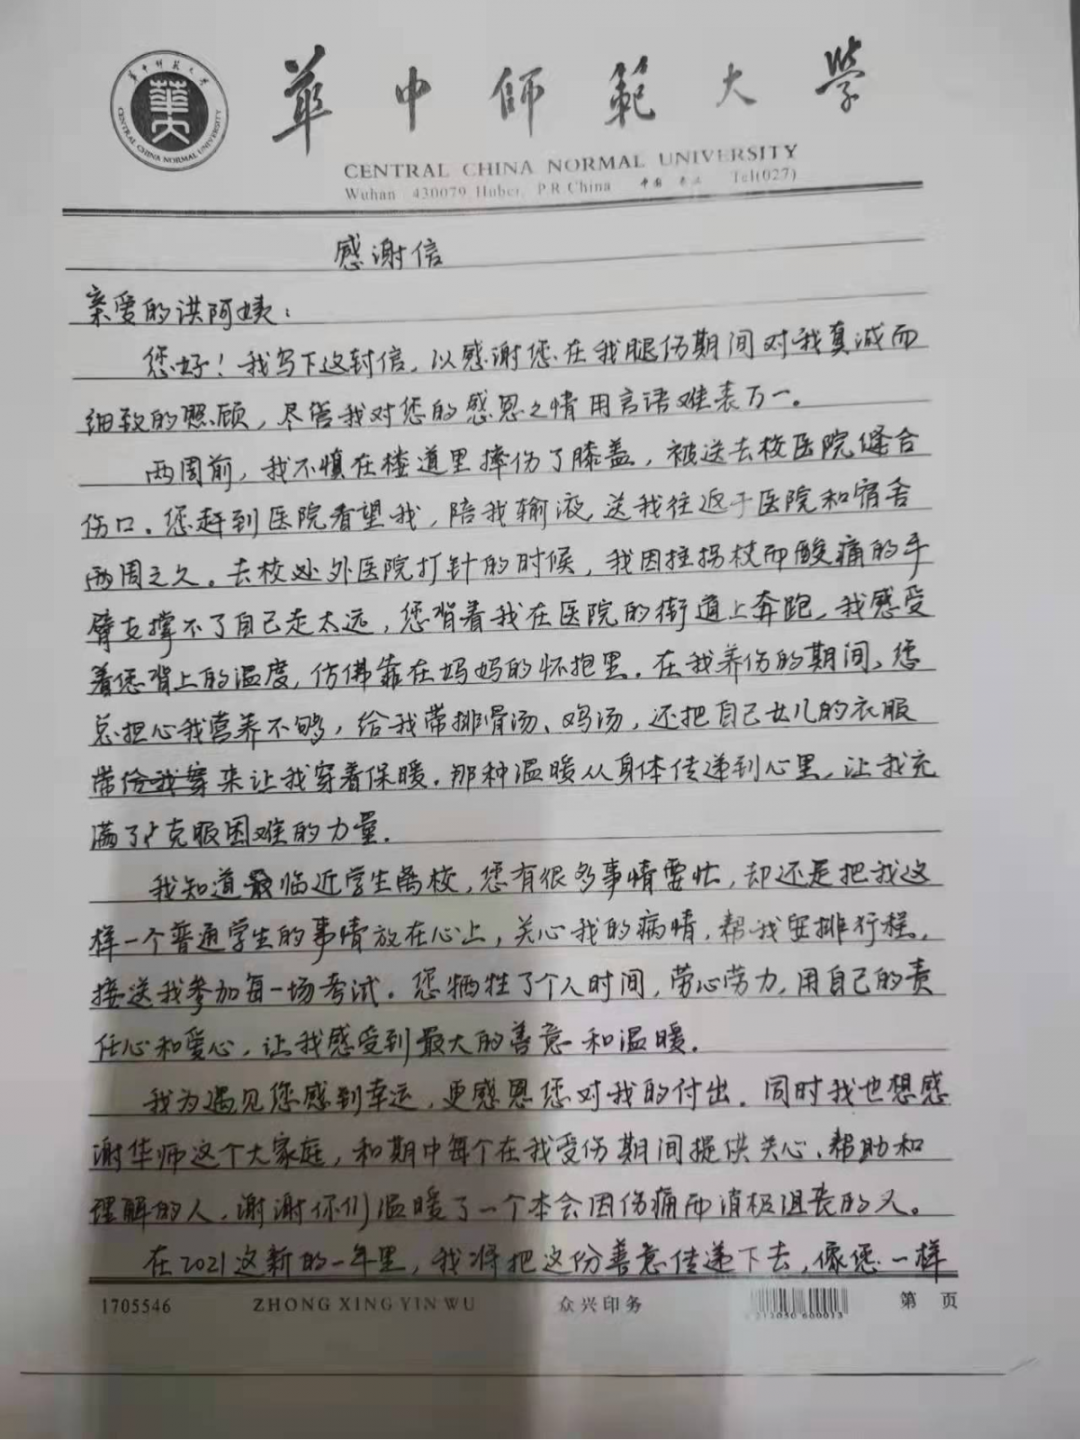 華中師範大學
CENTRAL CHINA NORMAL UNIVERSITY
Wuhan 430079 Hubei, P.R.China 中国 武汉 Tel(027)
華大
CENTRAL CHINA NORMAL UNIVERSITY
感谢信
亲爱的洪阿姨：
您好！我写下这封信，以感谢您在我腿伤期间对我真诚而
细致的照顾，尽管我对您的感恩之情用言语难表万一。
两周前，我不慎在楼道里摔伤了膝盖，被送去校医院缝合
伤口。您赶到医院看望我，陪我输液，送我往返于医院和宿舍
两周之久。去校外医院打针的时候，我因拄拐杖而酸痛的手
臂支撑不了自己走太远，您背着我在医院的街道上奔跑，我感受
着您背上的温度，仿佛靠在妈妈的怀抱里。在我养伤的期间，您
总担心我营养不够，给我带排骨汤、鸡汤，还把自己女儿的衣服
带给我穿来让我穿着保暖。那种温暖从身体传递到心里，让我充
满了克服困难的力量。
我知道临近学生离校，您有很多事情要忙，却还是把我这
样一个普通学生的事情放在心上，关心我的病情，帮我安排行程，
接送我参加每一场考试。您牺牲了个人时间，劳心劳力，用自己的责
任心和爱心，让我感受到最大的善意和温暖。
我为遇见您感到幸运，更感恩您对我的付出。同时我也想感
谢华师这个大家庭，和期中每个在我受伤期间提供关心、帮助和
理解的人，谢谢你们温暖了一个本会因伤痛而消极沮丧的人。
在2021这新的一年里，我将把这份善意传递下去，像您一样
1705546 ZHONG XING YIN WU 众兴印务 第 页